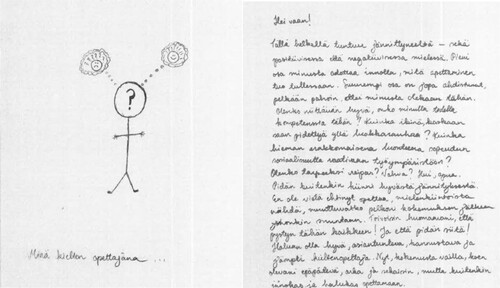 ?
Minä kielten opettajana ...
Hei vaan!
Tällä hetkellä tuntuu jännittyneeltä – sekä
positiivisessa että negatiivisessa mielessä. Pieni
osa minusta odottaa innolla, mitä opettaminen
tuo tullessaan. Suurempi osa on jopa ahdistunut,
pelkään pahoin ettei minusta olekaan tähän.
Olenko riittävän hyvä, onko minulla todella
kompetenssia tähän? Kuinka ikinä, koskaan
saan pidettyä yllä luokkarauhaa? Kuinka
hieman erakkomaisena luonteena sopeudun
sosiaalisuutta vaativaan työympäristöön?
Olenko tarpeeksi reipas? Vahva? Hui, apua.
Pidän kuitenkin kiinni hyvästä jännityksestä.
En ole vielä ehtinyt opettaa, mielenkiintoista
nähdä, muuttuvatko pelkoni kokemuksen jälkeen
johonkin suuntaan. Toivoisin huomaavani, että
pystyn tähän kaikkeen! Ja että pidän siitä!
Haluan olla hyvä, asiantunteva, kannustava ja
jämpti kieltenopettaja. Nyt, kokemusta vailla, koen
olevani epäpätevä, arka ja uhaisin, mutta kuitenkin
innokas ja halukas opettamaan.